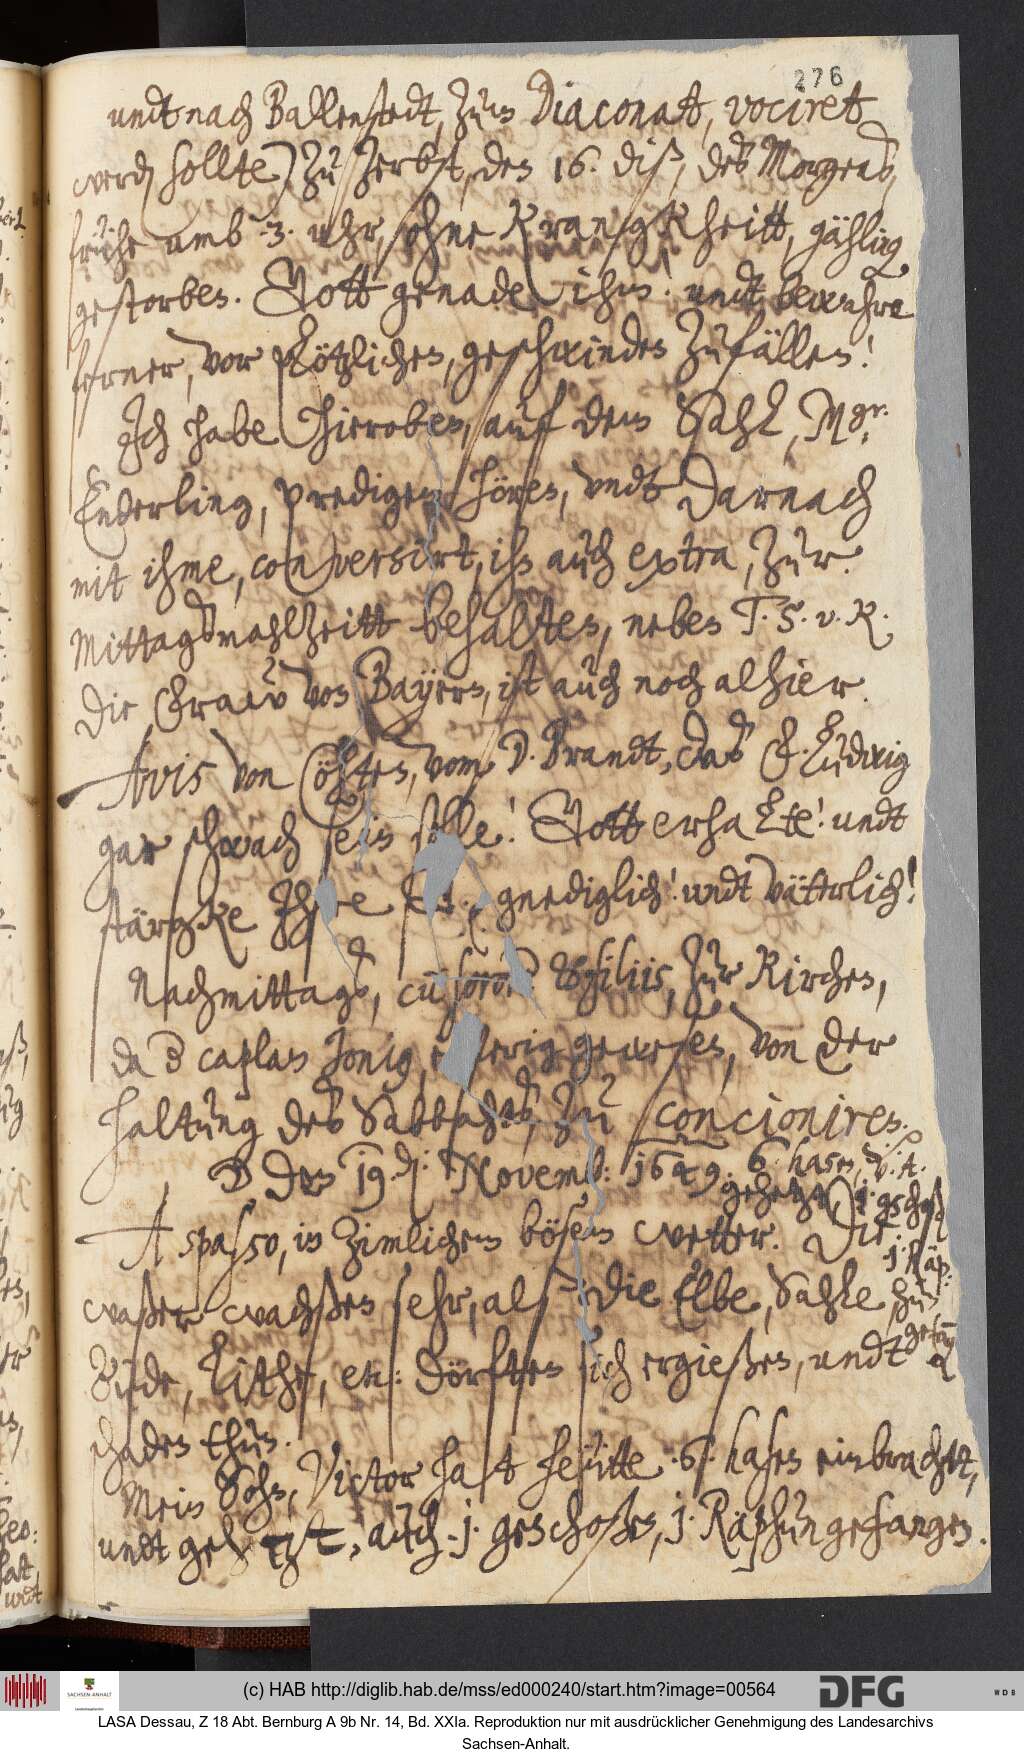 276
undt nach Ballenstedt, zum Diaconatt, vociret
werden sollte) zu Zerbst, den 16. diß, des Morgends,
frühe umb .3. uhr, ohne Krangkheitt, gähling
gestorben. Gott genade ihm! undt bewahre
ferner, vor plötzlichen, geschwinden Zufällen!
Ich habe hieroben, auf dem Sahl, Mgr.
Enderling, predigen hören, undt darnach
mit ihme, conversirt, ihn auch extra, zur
Mittagsmahlzeitt behalten, neben T. S. v. R.
Die Fraw von Bayern, ist auch noch alhier.
Avis von Cöhten, vom D. Brandt, das F. Ludwig
gar schwach sein solle! Gott erhalte! undt
stärgke Ihre gnediglich! undt vätterlich!
Nachmittags, cum filiis, zur Kirchen,
da caplan Jonig, gewesen, von der
haltung des Sabbaths, zu concioniren.
den 19. Novemb: 1649. 6. hasen,
gehetzt 1. geschoß
1. Räp:
hun
gefang
A spasso, in zimlichem bösem wetter. Die
waßer wachßen sehr, also die Elbe, Sahle
Bude, etc: dörften sich ergießen, undt
schaden thun.
Mein Sohn, Victor hat heütte .6. hasen einbracht,
undt gehetzt, auch .1. geschoßen, 1. Räphun gefangen.
(c) HAB http://diglib.hab.de/mss/ed000240/start.htm?image=00564
SACHSEN-ANHALT
DFG
WDB
LASA Dessau, Z 18 Abt. Bernburg A 9b Nr. 14, Bd. XXIa. Reproduktion nur mit ausdrücklicher Genehmigung des Landesarchivs
Sachsen-Anhalt.